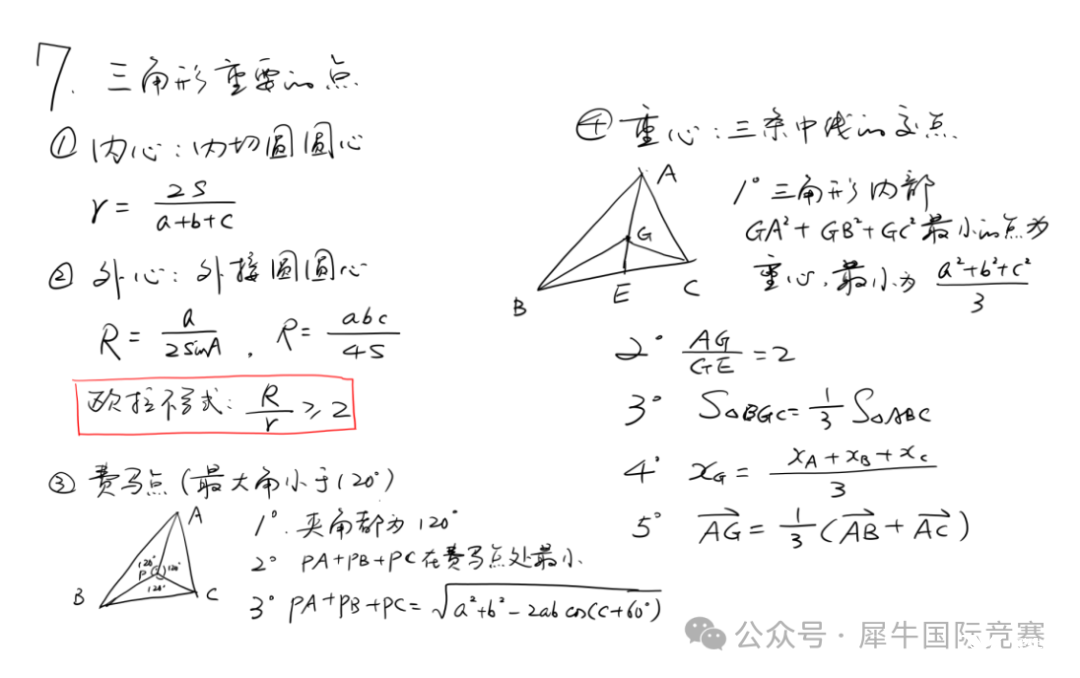 7. 三角形重要的点
① 内心：内切圆圆心
r = 2S/(a+b+c)
② 外心：外接圆圆心
R = a/(2sinA) , R = abc/(4S)
欧拉不等式：R/r ≥ 2
③ 费马点 (最大角小于120°)
A
B
C
P
120°
120°
120°
1°. 夹角都为120°
2° PA+PB+PC在费马点处最小
3° PA+PB+PC = √(a²+b²-2ab cos(C+60°))
④ 重心：三条中线的交点
A
G
B
E
C
1° 三角形内部
GA²+GB²+GC²最小的点为
重心，最小为 (a²+b²+c²)/3
2° AG/GE = 2
3° S△BGC = 1/3 S△ABC
4° x_G = (x_A+x_B+x_C)/3
5° \overrightarrow{AG} = 1/3(\overrightarrow{AB}+\overrightarrow{AC})
公众号·犀牛国际竞赛